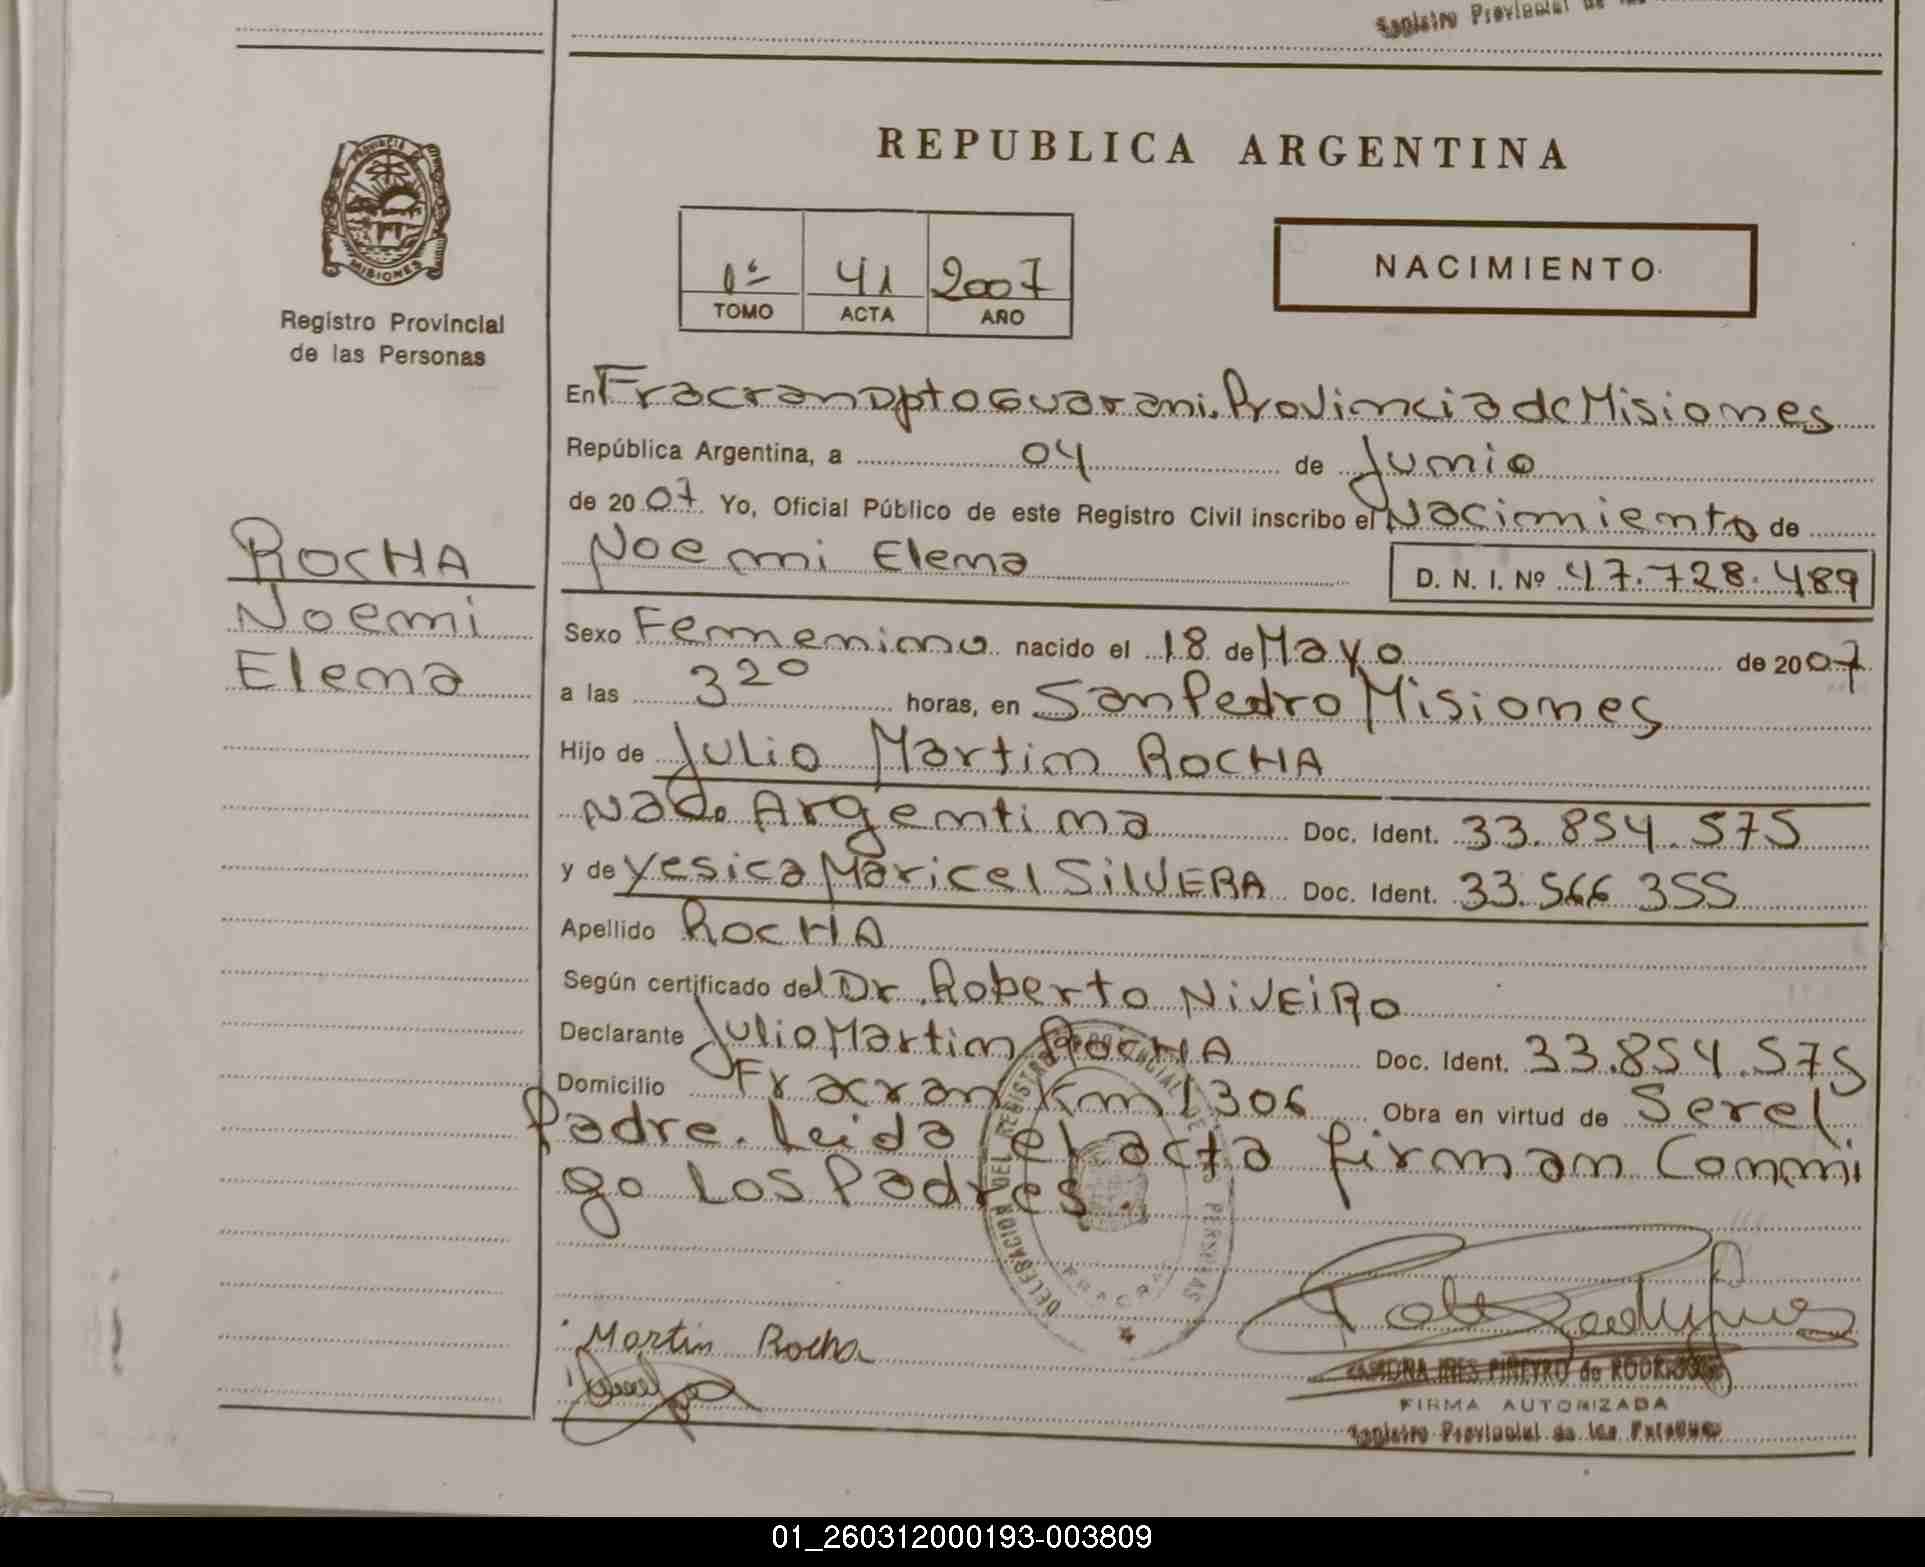 Registro Provincial de las
REPUBLICA ARGENTINA
PROVINCIA DE
MISIONES
Registro Provincial
de las Personas
1º 41 2007
TOMO ACTA AÑO
NACIMIENTO
En Fracran Dpto Guarani. Provincia de Misiones
República Argentina, a 04 de Junio
de 2007. Yo, Oficial Público de este Registro Civil inscribo el Nacimiento de
Noemi Elena D. N. I. Nº 47.728.489
ROCHA
Noemi
Elena
Sexo Femenino nacido el 18 de Mayo de 2007
a las 3 20 horas, en San Pedro Misiones
Hijo de Julio Martin ROCHA
Nad. Argentina Doc. Ident. 33.854.575
y de Yesica Maricel SilVERA Doc. Ident. 33.566 355
Apellido ROCHA
Según certificado del Dr. Roberto NiVEiRo
Declarante Julio Martin ROCHA Doc. Ident. 33.854.575
Domicilio Fracran Km 1306 Obra en virtud de Ser el
Padre. Leida el acta firman Conmi
go Los Padres.
DELEGACION DEL REGISTRO PROVINCIAL DE LAS PERSONAS
FRACRAN
Martin Rocha
PIÑEYRO de RODRIGUEZ
FIRMA AUTORIZADA
Registro Provincial de las Personas
01_260312000193-003809